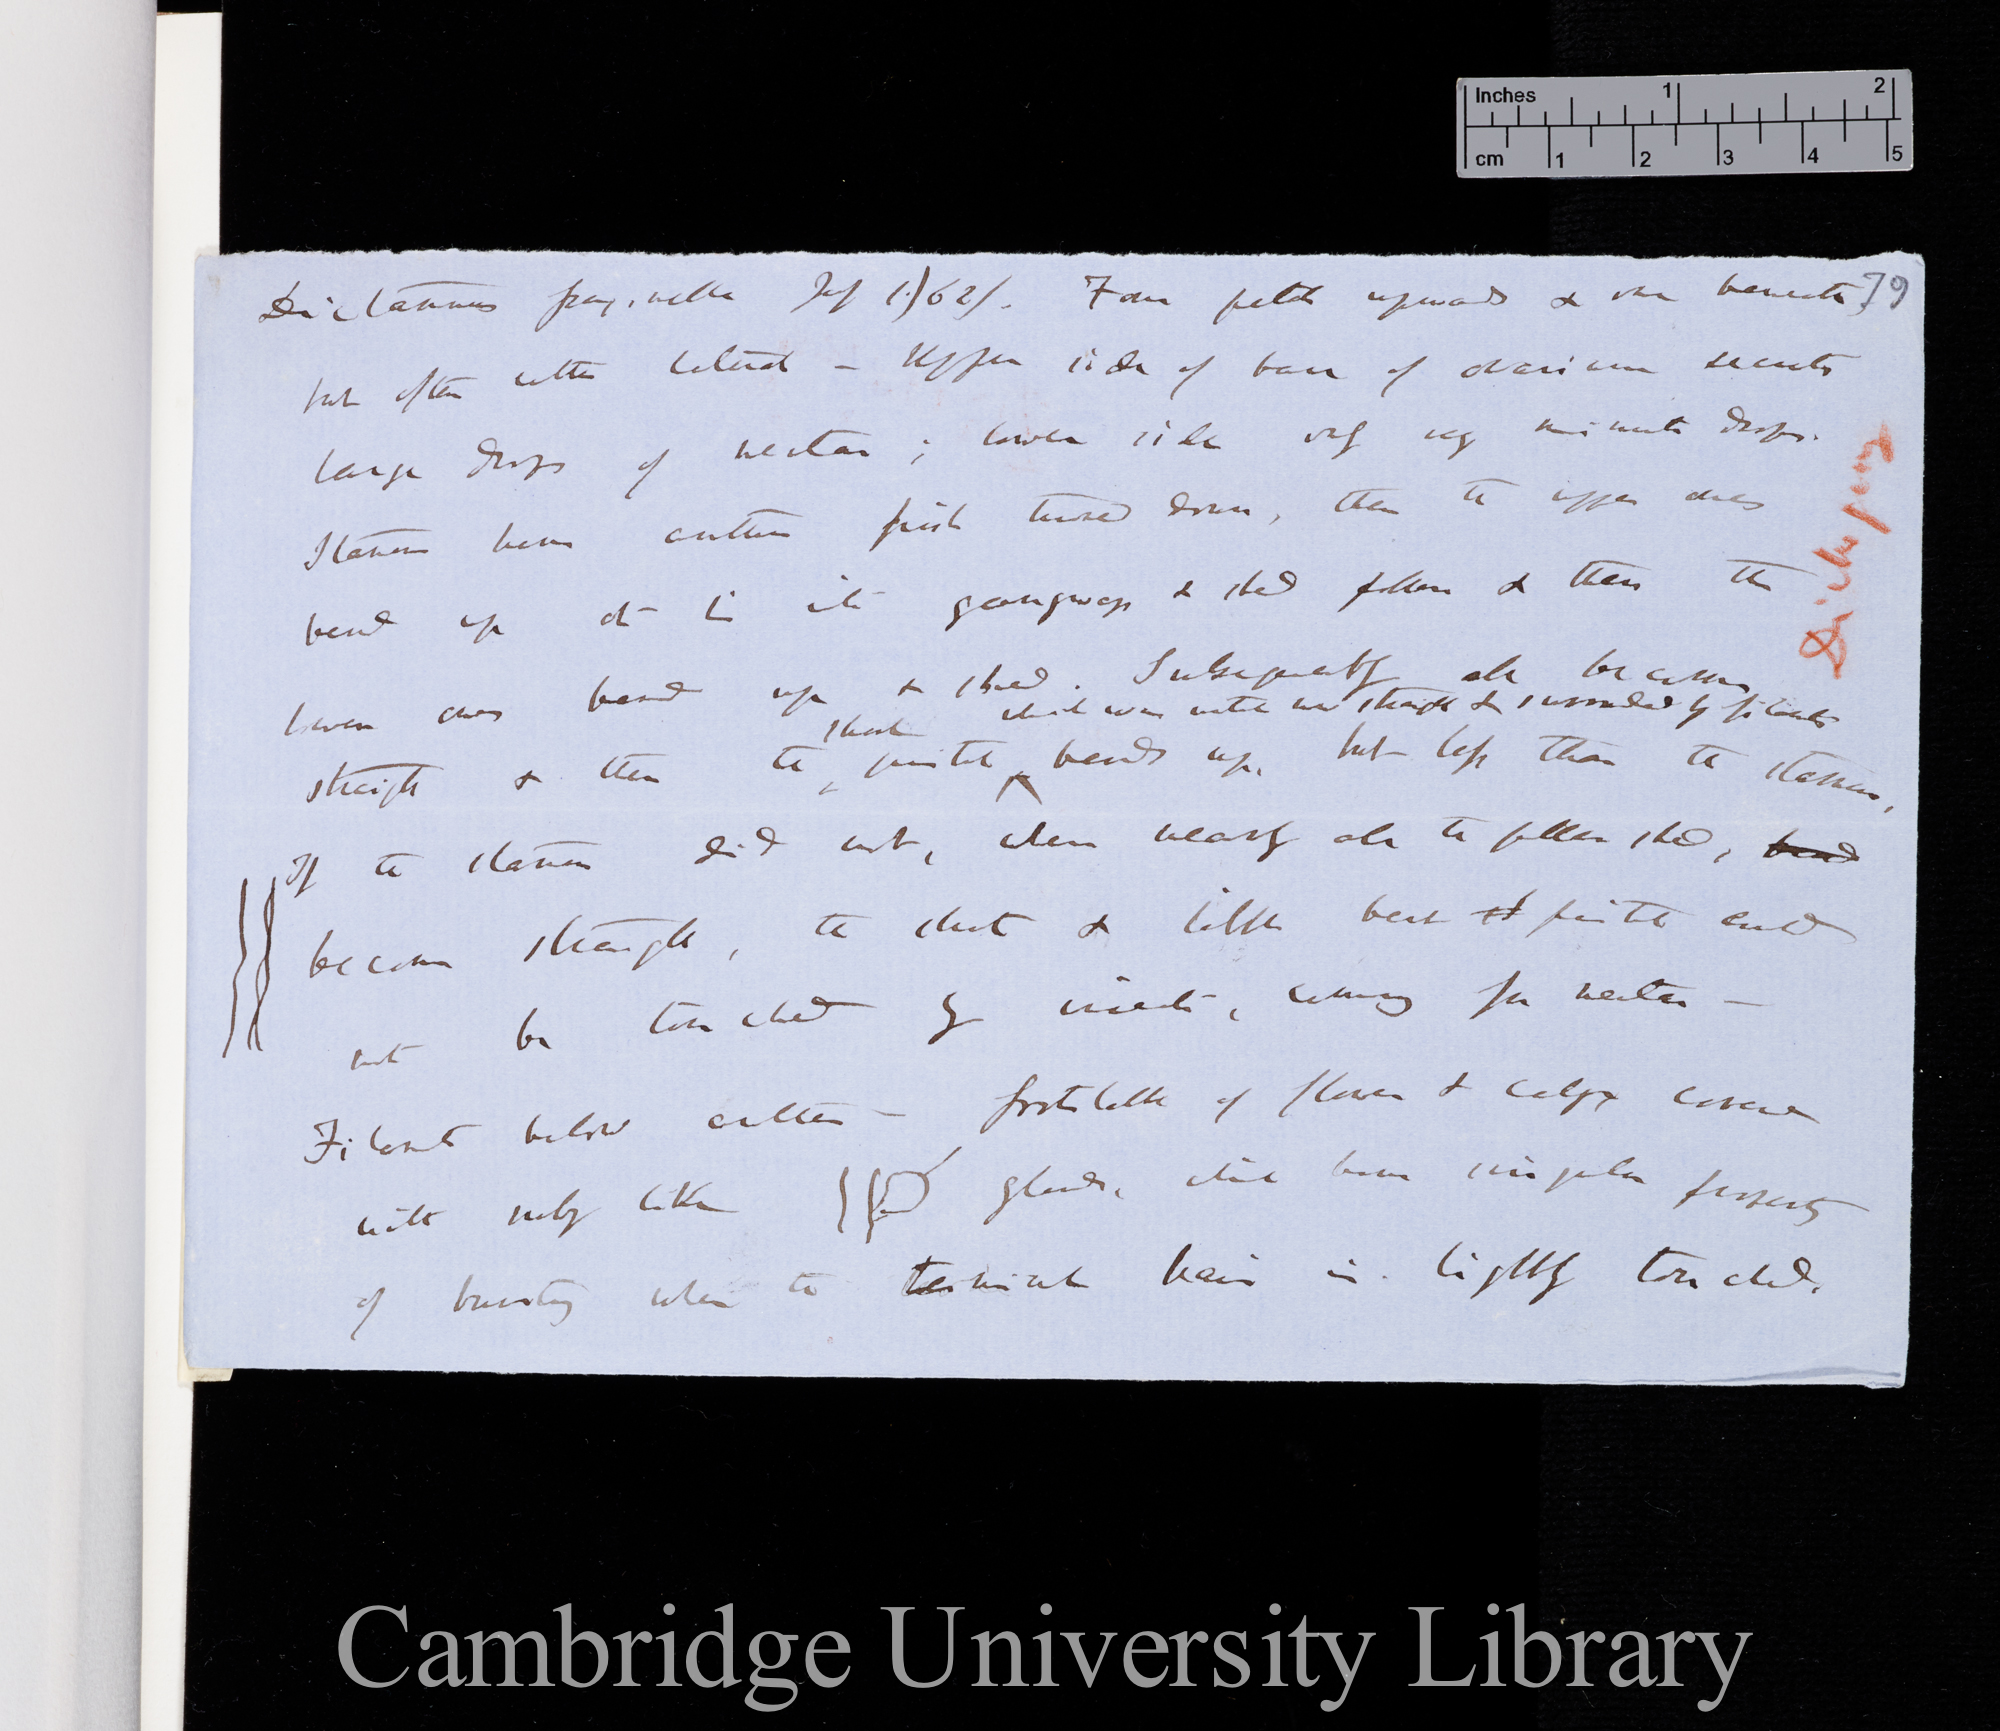 Inches 1 2
cm 1 2 3 4 5
79
Dictamnus fraxinella July 1/62/. Four petals upwards & one beneath,
but often rather lateral — Upper side of base of ovarium secretes
large drops of nectar; lower side only very minute drops.
Stamens have anthers first turned down, then the upper ones
bend up at & shed pollen & then the
lower ones bend up & shed. Subsequently all become
which was until now straight & surrounded by filaments
short
straight & then the pistil bends up, but less than the stamens,
If the stamens did not, when nearly all the pollen shed, bend
become straight, the short & little bent pistil could
not be touched by insects, coming for nectar —
Filaments below anthers — footstalk of flower & calyx covered
with ruby like glands, which have singular property
of bursting when the terminal hair is lightly touched.
Dichogamy
Cambridge University Library